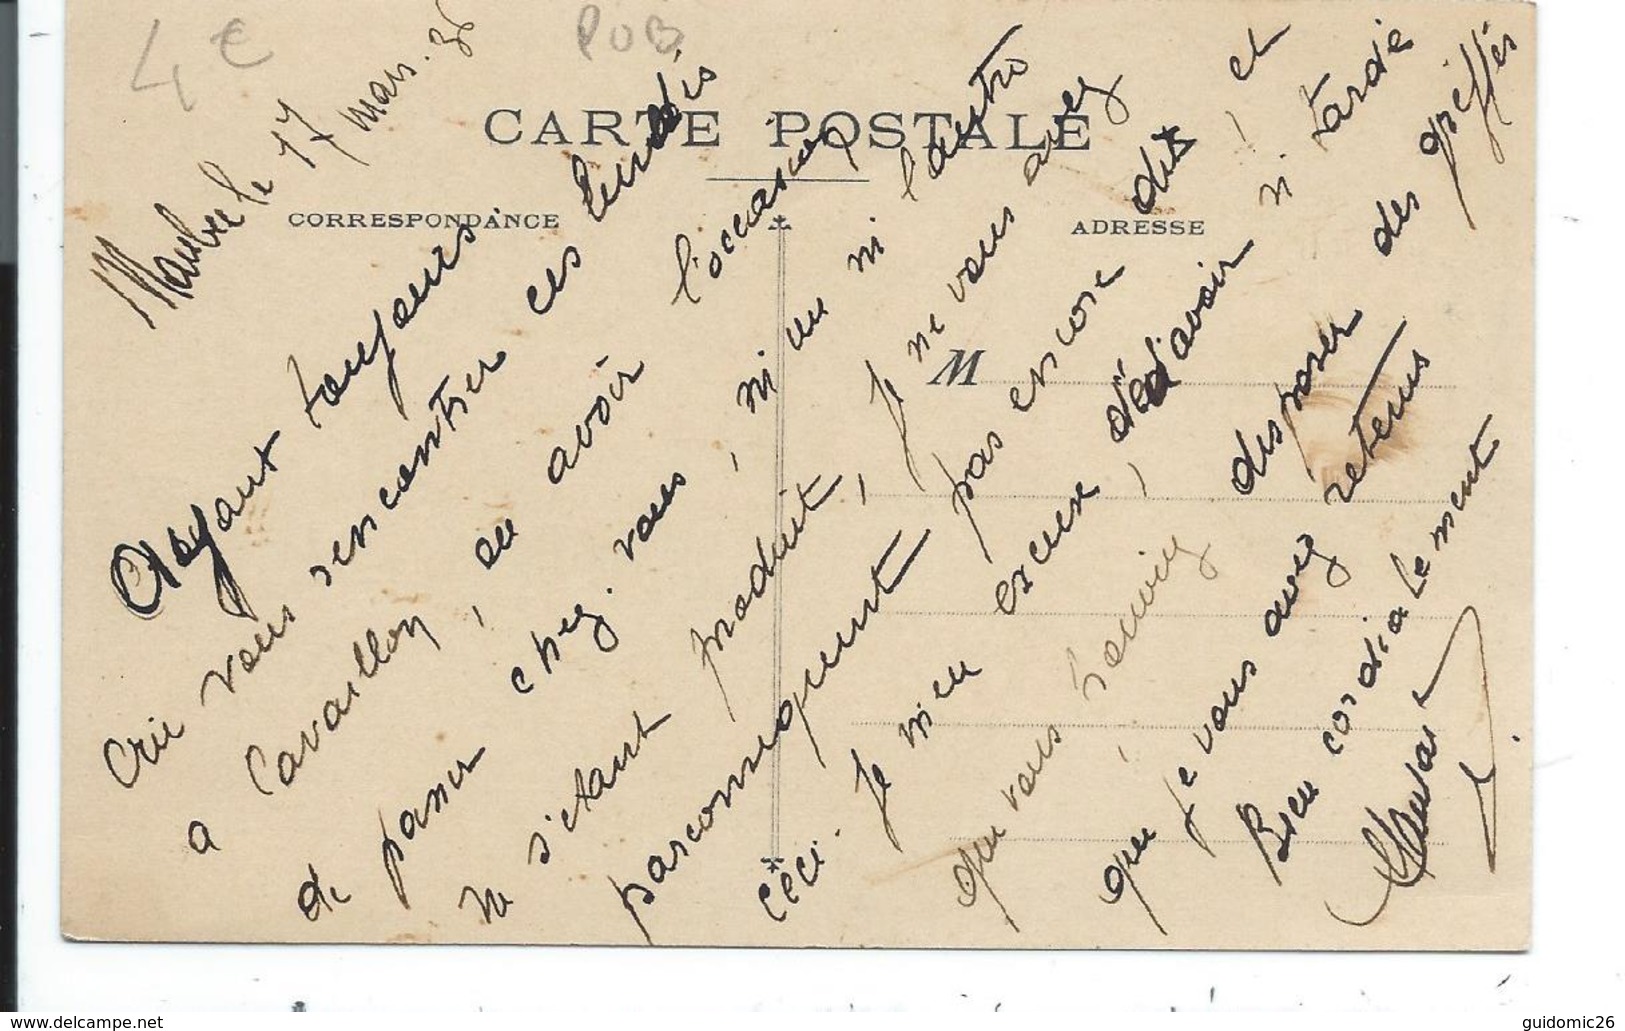 4 €
PUB
le 17 mars . 36
CARTE POSTALE
CORRESPONDANCE
ADRESSE
M
Ayant toujours
Crie vous rencontrer ces lundis
a Cavaillon, ou avoir l'occasion
de passer chez. vous, ni un ni l'autre
ne s'étant produit, je ne vous avez
parconsequent pas encore dit
ceci. je m'en excuse, d'avoir tardé et
que vous pouviez disposer des griffes
que je vous avez retenus
Bien cordialement
www.delcampe.net
guidomic26